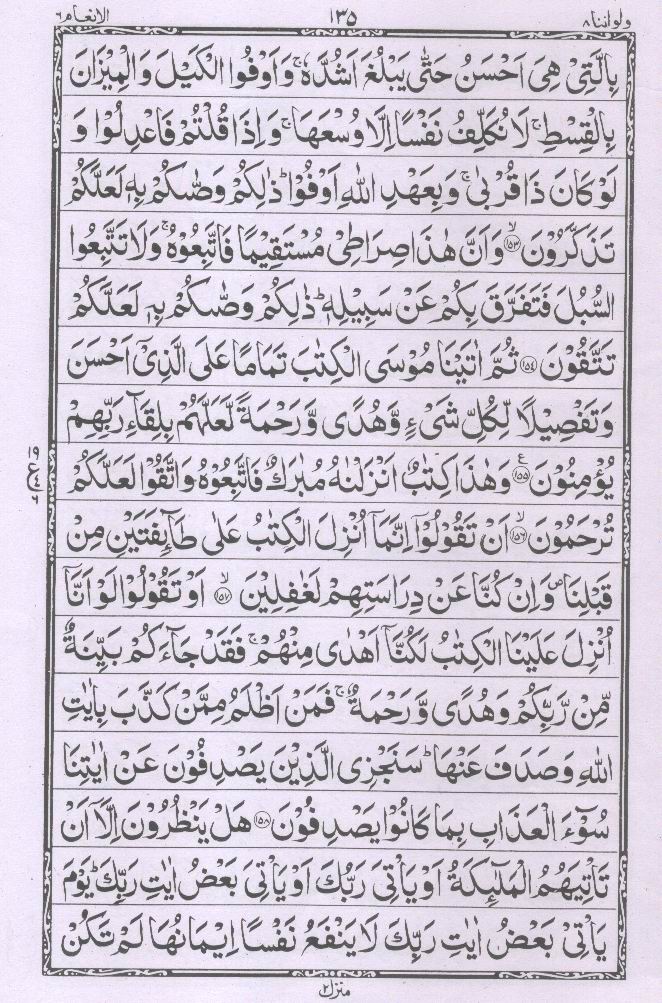 ولو اننا ٨ ١٣٥ الانعام ٦
بِالَّتِیْ هِیَ اَحْسَنُ حَتّٰی یَبْلُغَ اَشُدَّهٗ ۚ وَاَوْفُوا الْكَیْلَ وَالْمِیْزَانَ
بِالْقِسْطِ ۚ لَا نُكَلِّفُ نَفْسًا اِلَّا وُسْعَهَا ۚ وَاِذَا قُلْتُمْ فَاعْدِلُوْا وَ
لَوْ كَانَ ذَا قُرْبٰی ۚ وَبِعَهْدِ اللّٰهِ اَوْفُوْا ؕ ذٰلِكُمْ وَصّٰىكُمْ بِهٖ لَعَلَّكُمْ
تَذَكَّرُوْنَ ۙ﴿١٥٣﴾ وَاَنَّ هٰذَا صِرَاطِیْ مُسْتَقِیْمًا فَاتَّبِعُوْهُ ۚ وَلَا تَتَّبِعُوا
السُّبُلَ فَتَفَرَّقَ بِكُمْ عَنْ سَبِیْلِهٖ ؕ ذٰلِكُمْ وَصّٰىكُمْ بِهٖ لَعَلَّكُمْ
تَتَّقُوْنَ ﴿١٥٤﴾ ثُمَّ اٰتَیْنَا مُوْسَی الْكِتٰبَ تَمَامًا عَلَی الَّذِیْۤ اَحْسَنَ
وَتَفْصِیْلًا لِّكُلِّ شَیْءٍ وَّهُدًی وَّرَحْمَةً لَّعَلَّهُمْ بِلِقَآءِ رَبِّهِمْ
یُؤْمِنُوْنَ ﴿١٥٥﴾ ع وَهٰذَا كِتٰبٌ اَنْزَلْنٰهُ مُبٰرَكٌ فَاتَّبِعُوْهُ وَاتَّقُوْا لَعَلَّكُمْ
تُرْحَمُوْنَ ۙ﴿١٥٦﴾ اَنْ تَقُوْلُوْۤا اِنَّمَاۤ اُنْزِلَ الْكِتٰبُ عَلٰی طَآىِٕفَتَیْنِ مِنْ
قَبْلِنَا ۪ وَاِنْ كُنَّا عَنْ دِرَاسَتِهِمْ لَغٰفِلِیْنَ ۙ﴿١٥٧﴾ اَوْ تَقُوْلُوْا لَوْ اَنَّاۤ
اُنْزِلَ عَلَیْنَا الْكِتٰبُ لَكُنَّاۤ اَهْدٰی مِنْهُمْ ۚ فَقَدْ جَآءَكُمْ بَیِّنَةٌ
مِّنْ رَّبِّكُمْ وَهُدًی وَّرَحْمَةٌ ۚ فَمَنْ اَظْلَمُ مِمَّنْ كَذَّبَ بِاٰیٰتِ
اللّٰهِ وَصَدَفَ عَنْهَا ؕ سَنَجْزِی الَّذِیْنَ یَصْدِفُوْنَ عَنْ اٰیٰتِنَا
سُوْٓءَ الْعَذَابِ بِمَا كَانُوْا یَصْدِفُوْنَ ﴿١٥٨﴾ هَلْ یَنْظُرُوْنَ اِلَّاۤ اَنْ
تَاْتِیَهُمُ الْمَلٰٓىِٕكَةُ اَوْ یَاْتِیَ رَبُّكَ اَوْ یَاْتِیَ بَعْضُ اٰیٰتِ رَبِّكَ ؕ یَوْمَ
یَاْتِیْ بَعْضُ اٰیٰتِ رَبِّكَ لَا یَنْفَعُ نَفْسًا اِیْمَانُهَا لَمْ تَكُنْ
منزل ٢